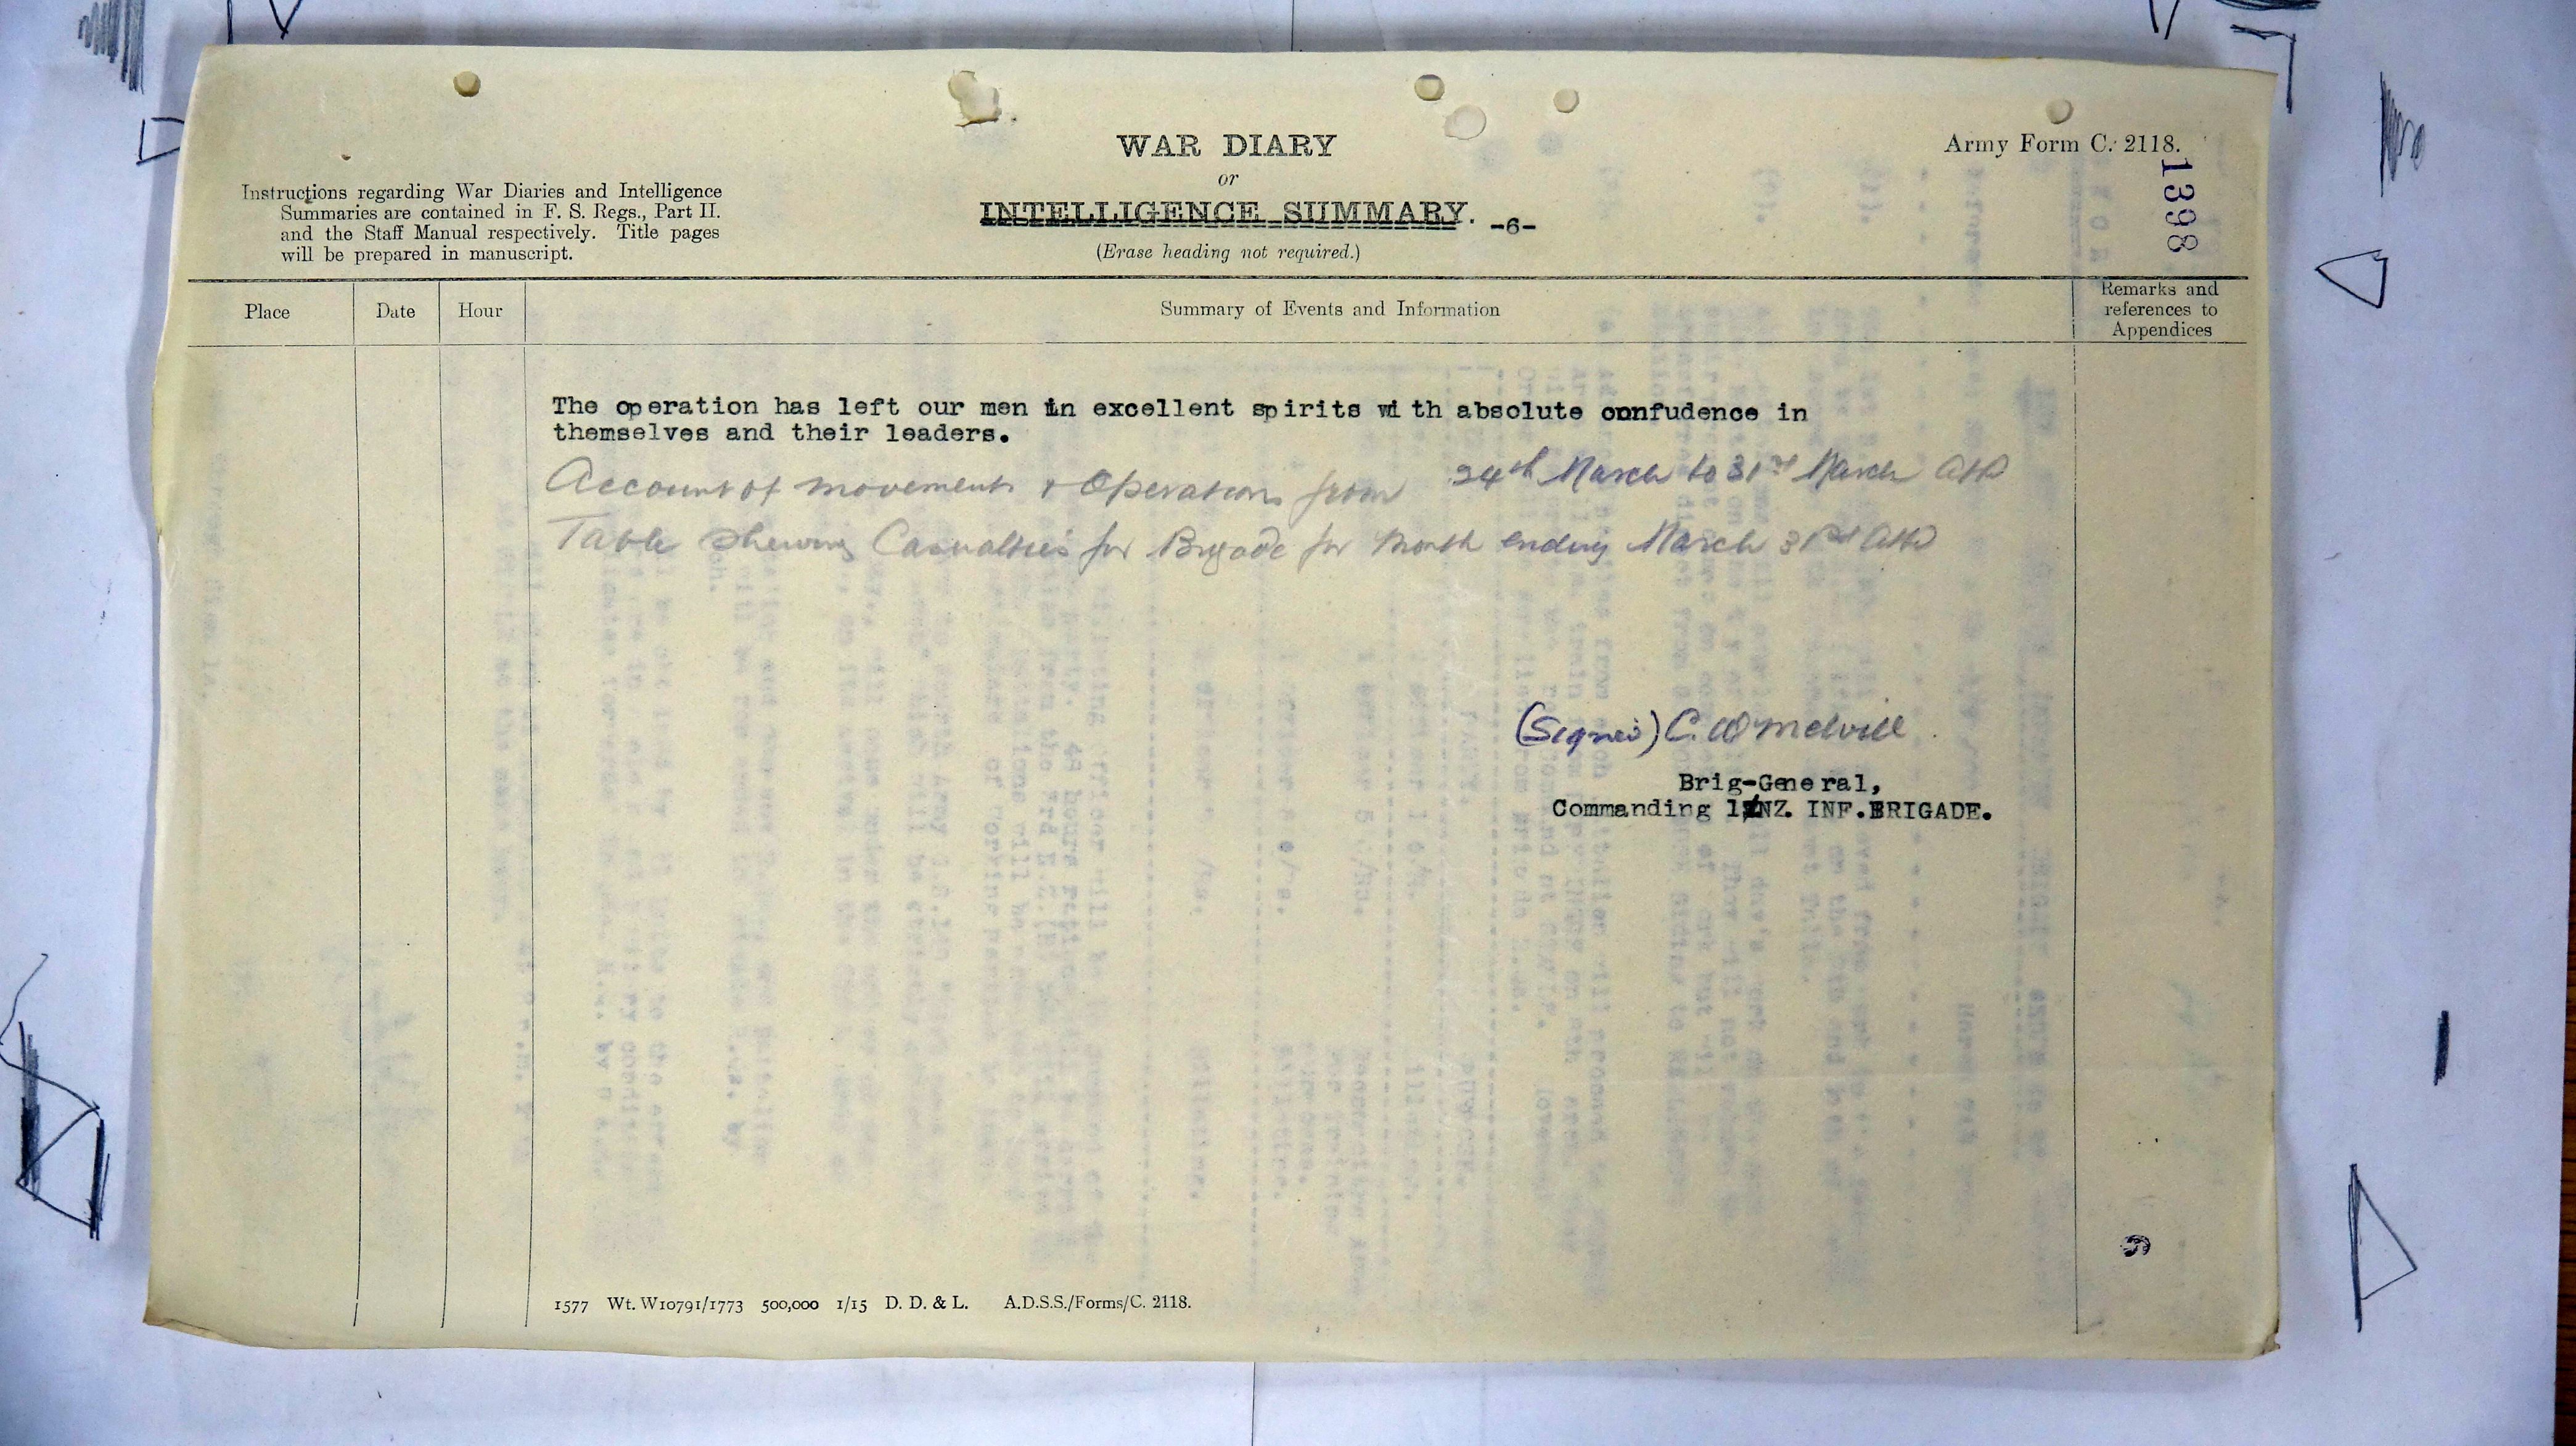 WAR DIARY
or
INTELLIGENCE SUMMARY. -6-
(Erase heading not required.)
Army Form C. 2118.
1398
Instructions regarding War Diaries and Intelligence
Summaries are contained in F. S. Regs., Part II.
and the Staff Manual respectively. Title pages
will be prepared in manuscript.
Place Date Hour Summary of Events and Information Remarks and references to Appendices
The operation has left our men in excellent spirits with absolute connfudence in
themselves and their leaders.
Account of movements & Operations from 24th March to 31st March attd
Table shewing Casualties for Brigade for Month ending March 31st attd
(Signed) C. W Melvill
Brig-General,
Commanding 1 NZ. INF.BRIGADE.
1577 Wt. W10791/1773 500,000 1/15 D. D. & L. A.D.S.S./Forms/C. 2118.